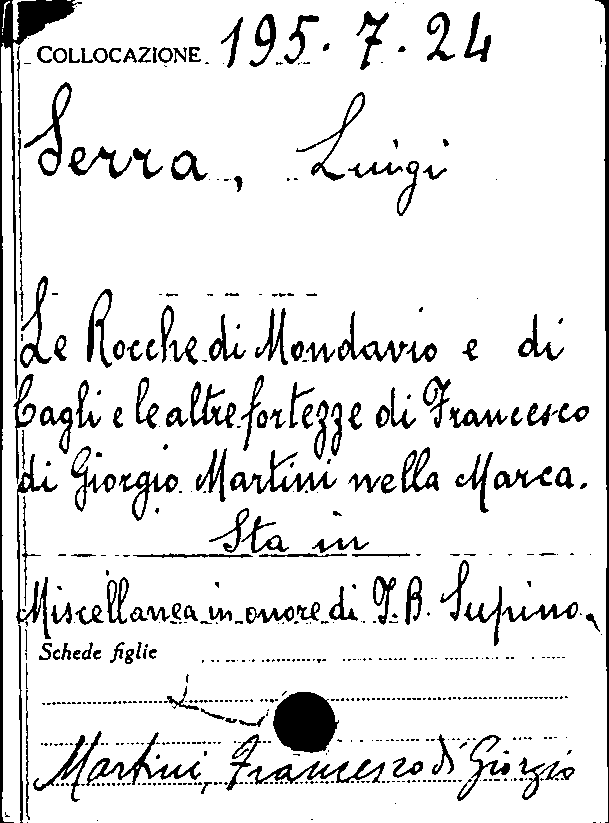 COLLOCAZIONE 195.7.24
Serra, Luigi
Le Rocche di Mondavio e di
Cagli e le altre fortezze di Francesco
di Giorgio Martini nella Marca.
Sta in
Miscellanea in onore di I. B. Supino.
Schede figlie
Martini, Francesco di Giorgio